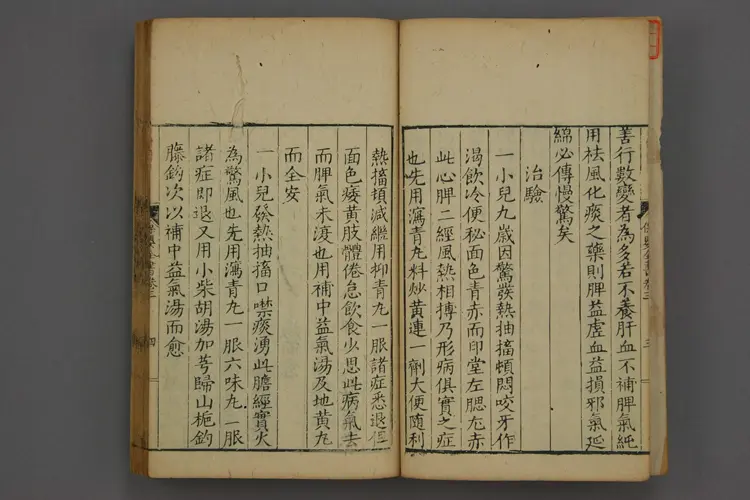 善行數變者為多若不養肝血不補脾氣純
用祛風化痰之藥則脾益虛血益損邪氣延
綿必傳慢驚矣
治驗
一小兒九歲因驚發熱抽搐頓悶咬牙作
渴飲冷便秘面色青赤而印堂左腮尤赤
此心脾二經風熱相搏乃形病俱實之症
也先用瀉青丸料炒黃連一劑大便隨利
熱搐頓減繼用抑青丸一服諸症悉退但
面色痿黃肢體倦怠飲食少思此病氣去
而脾氣未復也用補中益氣湯及地黃丸
而全安
一小兒發熱抽搐口噤痰湧此膽經實火
為驚風也先用瀉青丸一服六味丸一服
諸症即退又用小柴胡湯加芎歸山梔鈎
藤鈎次以補中益氣湯而愈
四